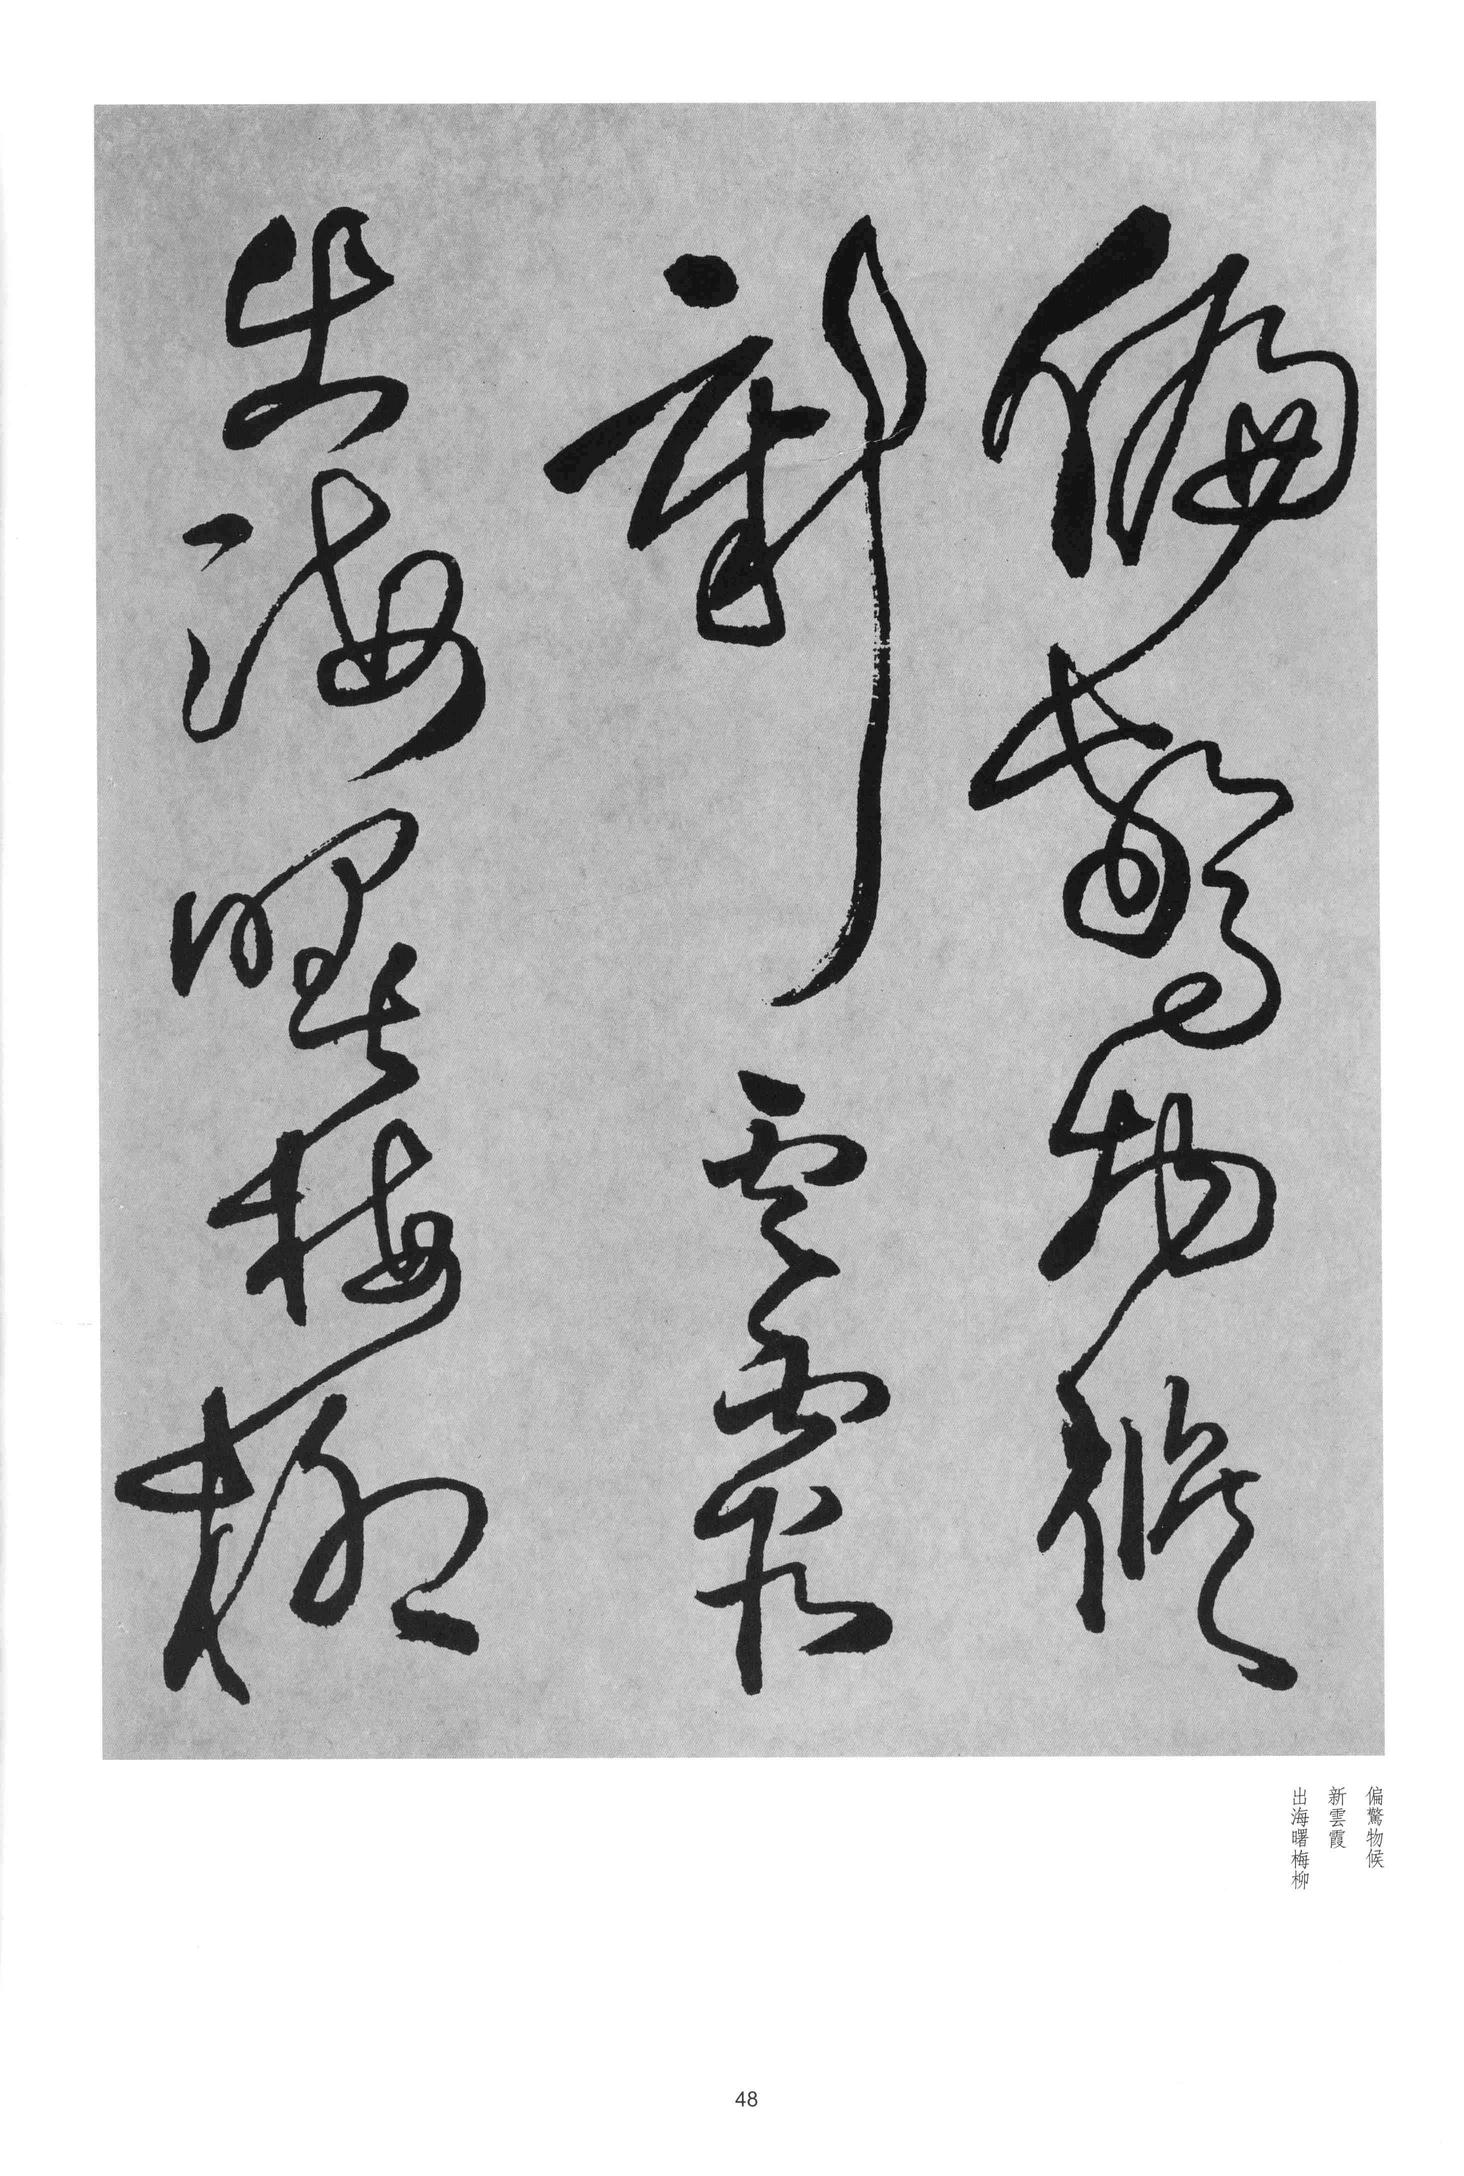 偏驚物候
新雲霞
出海曙梅柳
偏驚物候
新雲霞
出海曙梅柳
48